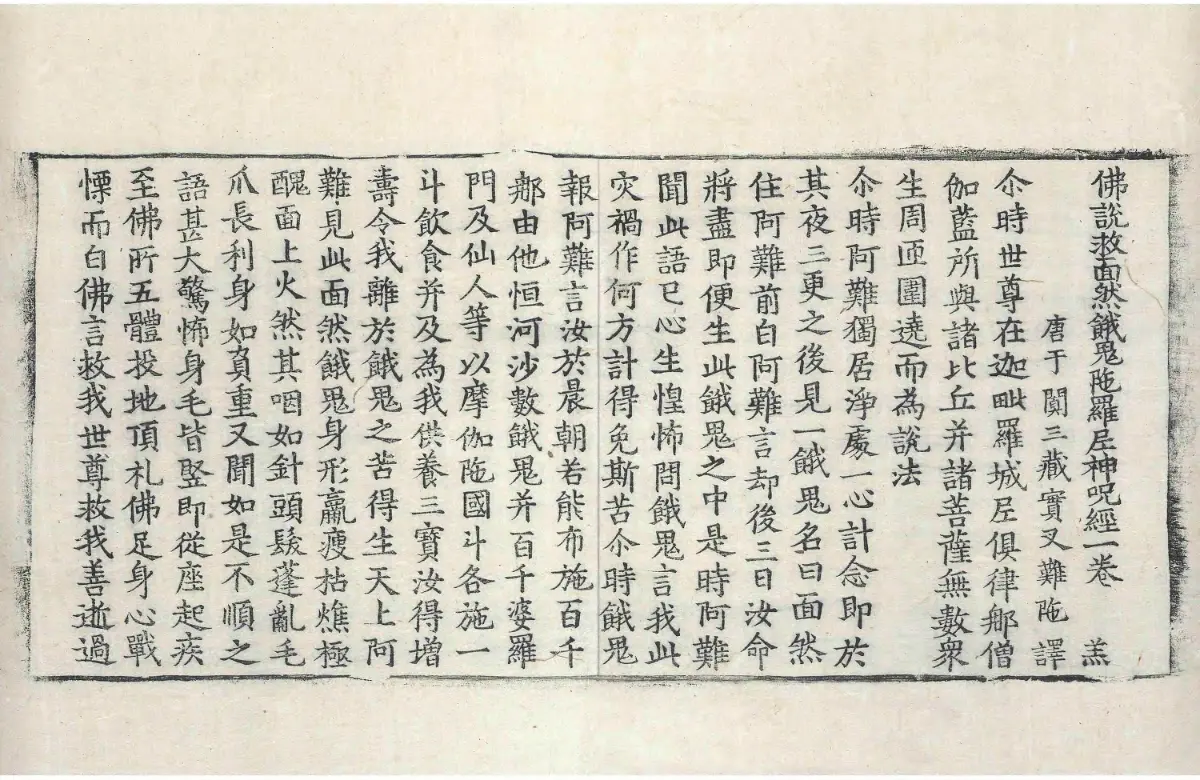 佛說救面然餓鬼陁羅尼神呪經一卷 羔
唐于闐三藏實叉難陁 譯
尒時世尊在迦毗羅城尼俱律郍僧
伽藍所與諸比丘并諸菩薩無數衆
生周匝圍遶而為說法
尒時阿難獨居淨處一心計念即於
其夜三更之後見一餓鬼名曰面然
住阿難前白阿難言却後三日汝命
將盡即便生此餓鬼之中是時阿難
聞此語已心生惶怖問餓鬼言我此
灾禍作何方計得免斯苦尒時餓鬼
報阿難言汝於晨朝若能布施百千
郍由他恒河沙數餓鬼并百千婆羅
門及仙人等以摩伽陁國斗各施一
斗飲食并及為我供養三寶汝得增
壽令我離於餓鬼之苦得生天上阿
難見此面然餓鬼身形羸瘦枯燋極
醜面上火然其咽如針頭髮蓬亂毛
爪長利身如負重又聞如是不順之
語甚大驚怖身毛皆竪即從座起疾
至佛所五體投地頂礼佛足身心戰
慄而白佛言救我世尊救我善逝過